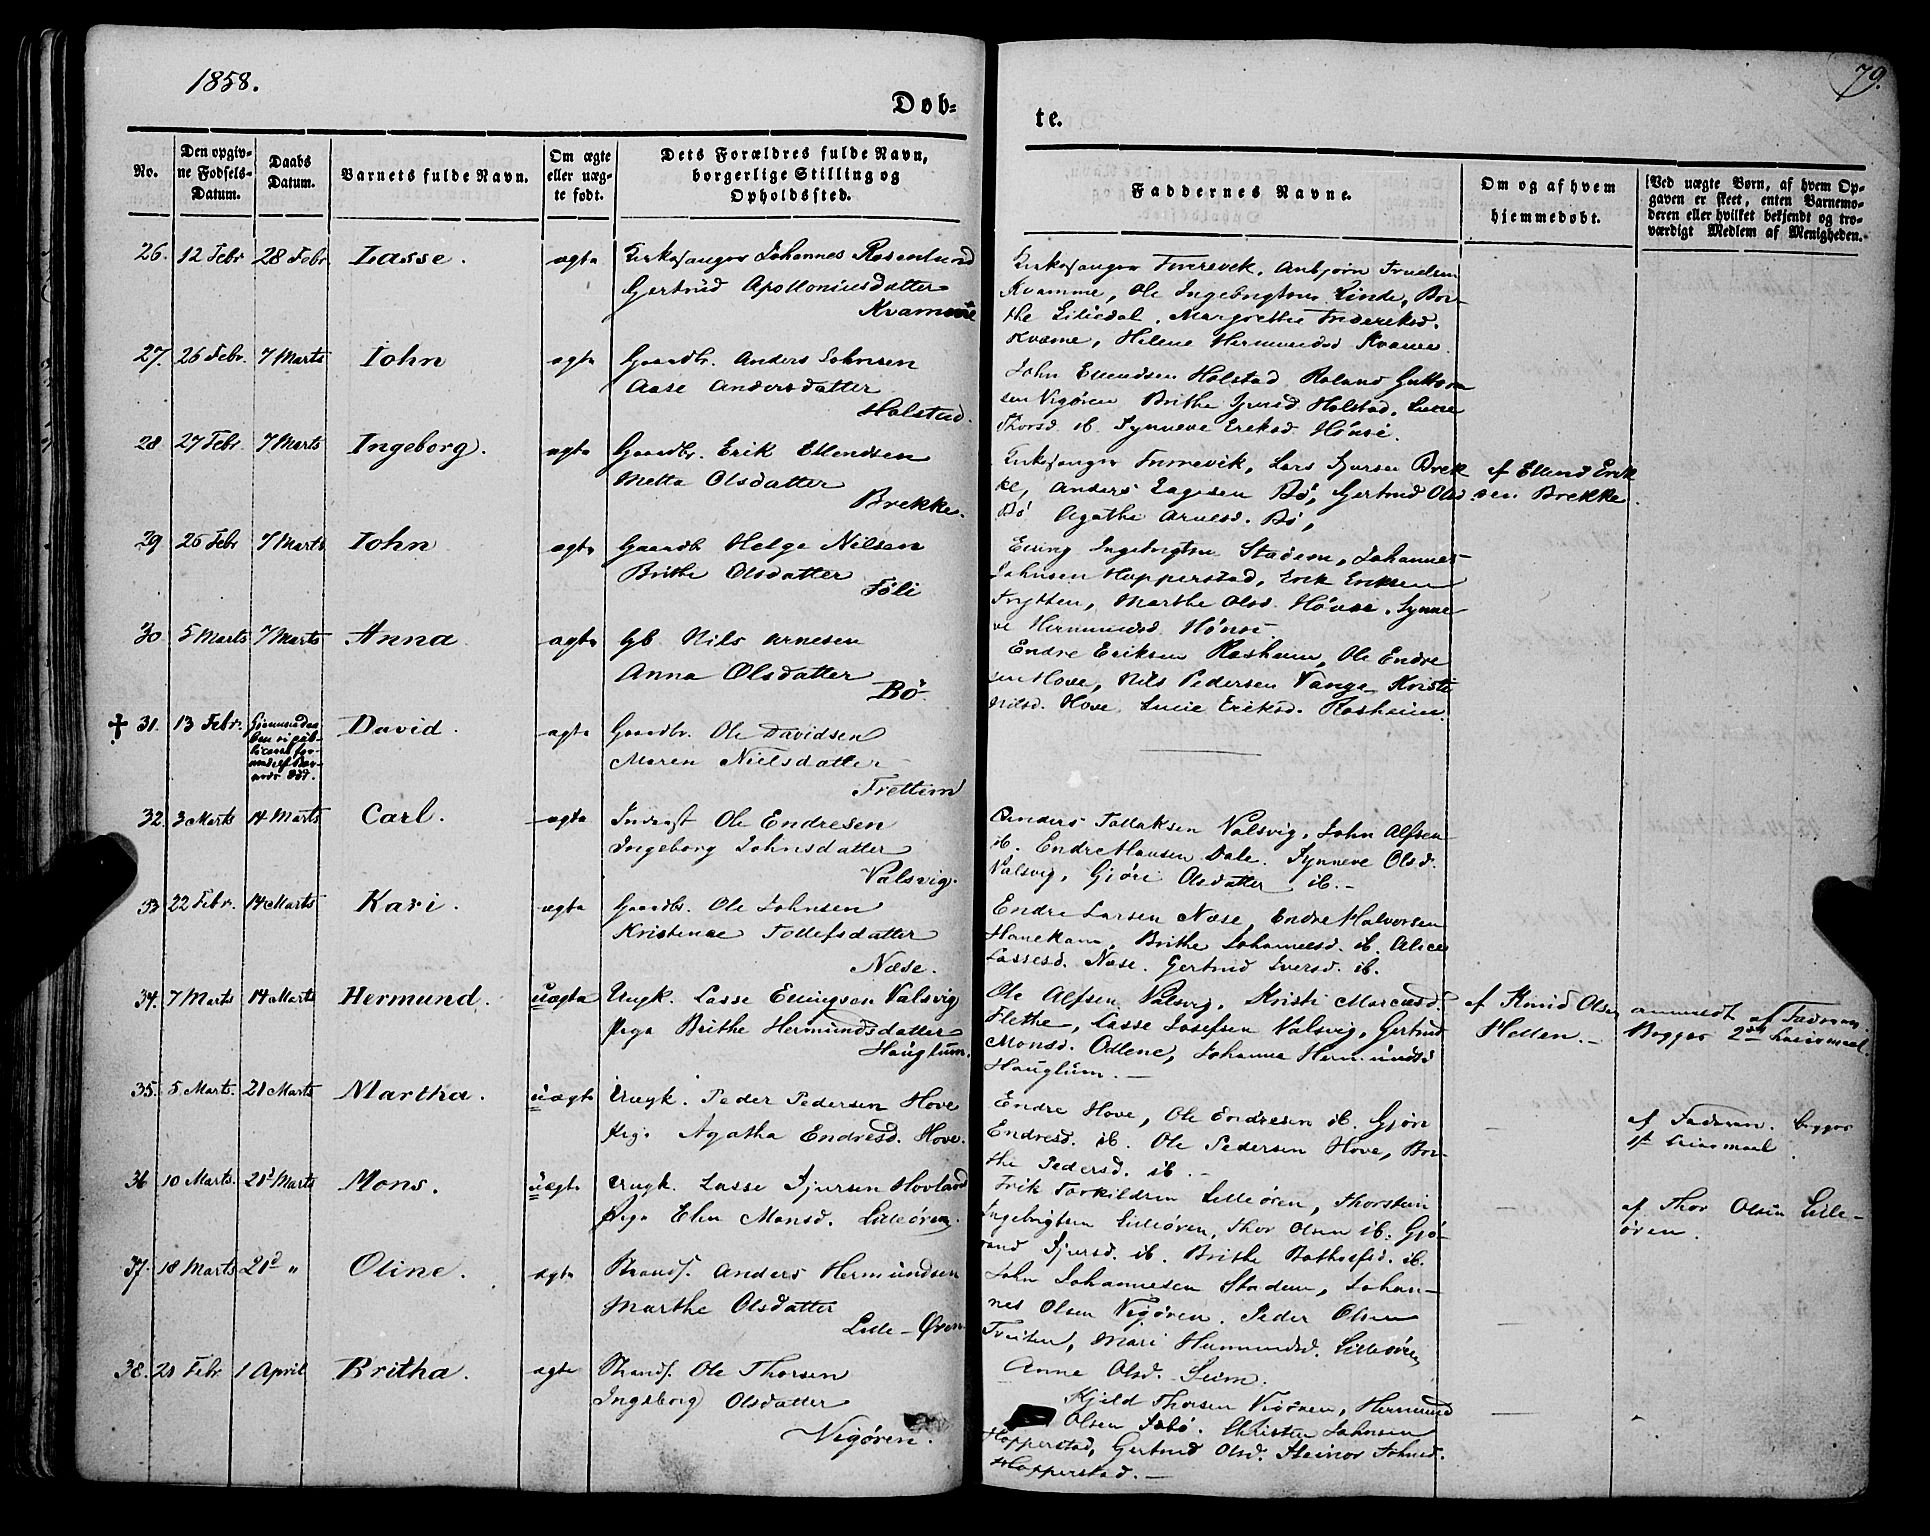 1858.
79.
Døb-
te.
No.
Den opgiv-
ne Fødsels-
Datum.
Daabs
Datum.
Barnets fulde Navn.
Om ægte
eller uæg-
te født.
Dets Forældres fulde Navn,
borgerlige Stilling og
Opholdssted.
Faddernes Navne.
Om og af hvem
hjemmedøbt.
(Ved uægte Børn, af hvem Op-
gaven er skeet, enten Barnemo-
deren eller hvilket bekjendt og tro-
værdigt Medlem af Menigheden.
26. 12 Febr 28 Febr Lasse. ægte Kirkesanger Johannes Rosenlund
Gjertrud Apolloniusdatter
Kvamme
Kirkesanger Turrevek, Anbjørn Truelsen
Kvamme, Ole Ingebrigtsen Linde, Bri-
the Liliedal, Margrethe Frederiksd.
Kvame, Helene Hermundsd Kvame.
27. 26 Febr. 7 Marts John ægte Gaardbr. Anders Johnsen
Aase Andersdatter
Holstad.
John Ellendsen Holstad, Roland Guttorm
sen Vigøren Brithe Sjursd Holstad,
Thorsd. ib. Synneve Eriksd. Hønsi.
28 27 Febr. 7 Marts Ingeborg. ægte Gaardbr. Erik Ellendsen
Metta Olsdatter
Brekke.
Kirkesanger Turrevik, Lars Sjursen Brek
ke, Anders Lagesen Bø, Gjertrud Olsd
Bø Agathe Arnesd. Bø,
af Ellend Erik
sen Brekke.
29 26 Febr 7 Marts John ægte Gaardb Helge Nilsen
Brithe Olsdatter
Føli
Elling Ingebrigtsen Stadem, Johannes
Johnsen Hopperstad, Erik Eriksen
Trytten, Marthe Olsd. Hønse, Synne
ve Hermundsd. Hønsi.
30. 5 Marts 7 Marts Anna. ægte Gb Nils Arnesen
Anna Olsdatter
Bø
Endre Eriksen Rasheim, Ole Endre
sen Hove, Nils Pedersen Vange Kristi
Nilsd. Hove, Lucie Eriksd. Rasheim.
† 31. 13 Febr. David. ægte Gaardbr. Ole Davidsen
Maren Nielsdatter
Frettem
32. 3 Marts 14 Marts Carl. ægte Inderst Ole Endresen
Ingeborg Johnsdatter
Valsvig.
Anders Tollaksen Valsvig, John Alfsen
ib. Endre Hansen Dale. Synneve Olsd.
Valsvig, Gjøri Olsdatter ib.-
33 22 Febr. 14 Marts Kari. ægte Gaardbr. Ole Johnsen
Kristence Tollefsdatter
Næse.
Endre Larsen Næse, Endre Halvorsen
Hanekam, Brithe Johannesd. ib. Alice
Lassesd. Næse. Gertrud Iversd. ib.
34. 7 Marts 14 Marts Hermund. uægte Ungk. Lasse Ellingsen Valsvig
Pige Brithe Hermundsdatter
Hauglum.
Ole Alfsen Valsvig, Kristi Marcusd.
Flethe, Lasse Josefsen Valsvig, Gertrud
Monsd. Odlene, Johanna Hermundsd
Hauglum.-
af Knud Olsen
Hellen.-
anmeldt af Faderen.
Begges 2det Leiermaal.
35. 5 Marts. 21 Marts Martha. uægte Ungk. Peder Pedersen Hove
Pige Agatha Endresd. Hove.
Endre Hove, Ole Endresen ib. Gjøri
Endresd. ib. Ole Pedersen Hove, Bri-
the Pedersd. ib.-
af Faderen. Begges
1st Leiermaal.
36 10 Marts. 21d Marts Mons. uægte Ungk. Lasse Sjursen Hovland
Pige Elen Monsd. Lilleøren.
Erik Torkildsen Lilleøren, Thorstein
Ingebrigtsen Lilleøren, Thor Olsen ib. Gjø-
rond Sjursd. ib. Brithe Botholfsd. ib.
af Thor Olsen Lille-
øren.
37. 18 Marts 21d " Oline. ægte Strands. Anders Hermundsen
Marthe Olsdatter
Lille-Øren
John Johannesen Stadem, Johan-
nes Olsen Vigøren. Peder Olsen
Treiten, Mari Hermundsd. Lilleøren
Anne Olsd. Seim.
38. 21 Febr 1 April Britha. ægte Strands. Ole Thorsen
Ingeborg Olsdatter
Vigøren.
Kjeld Thorsen Viøren, Hermund
Olsen Tobø. Christen Johnsen
Hopperstad, Gertrud Olsd. Steinor Johnsd.
Hopperstad.-